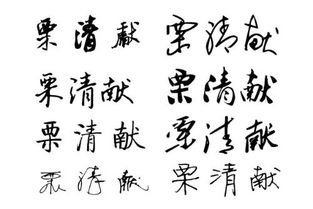 栗清獻
栗清献
栗清献
栗清献
栗清献
栗清献
栗清献
栗清献